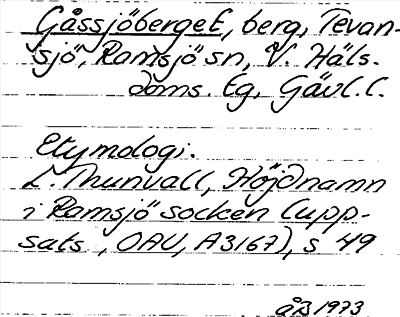 Gåssjöberget, berg, Tevan-
sjö, Ramsjö sn, V. Häls.
doms. Eg, Gävl.l.
Etymologi.
L. Thunvall, Höjdnamn
i Ramsjö socken (upp-
sats, OAU, A3167), s 49
ÅB 1973